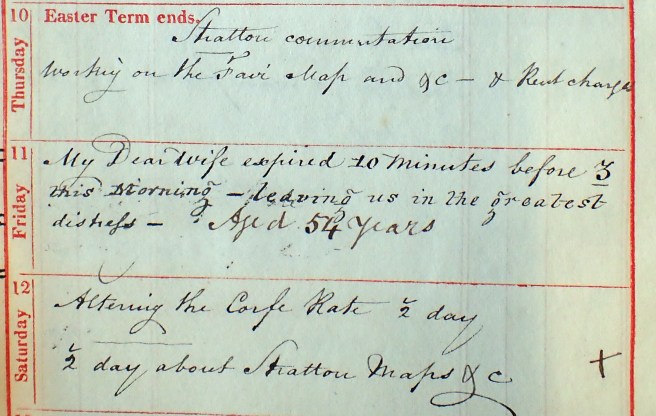 10 Easter Term ends.
Thursday
Stratton commutation
Working on the Fair Map and &c — & Rent charge
11
Friday
My Dear Wife expired 10 Minutes before 3
this Morning — leaving us in the greatest
distress — Aged 54 Years
12
Saturday
Altering the Corfe Rate ½ day
½ day about Stratton Maps &c +